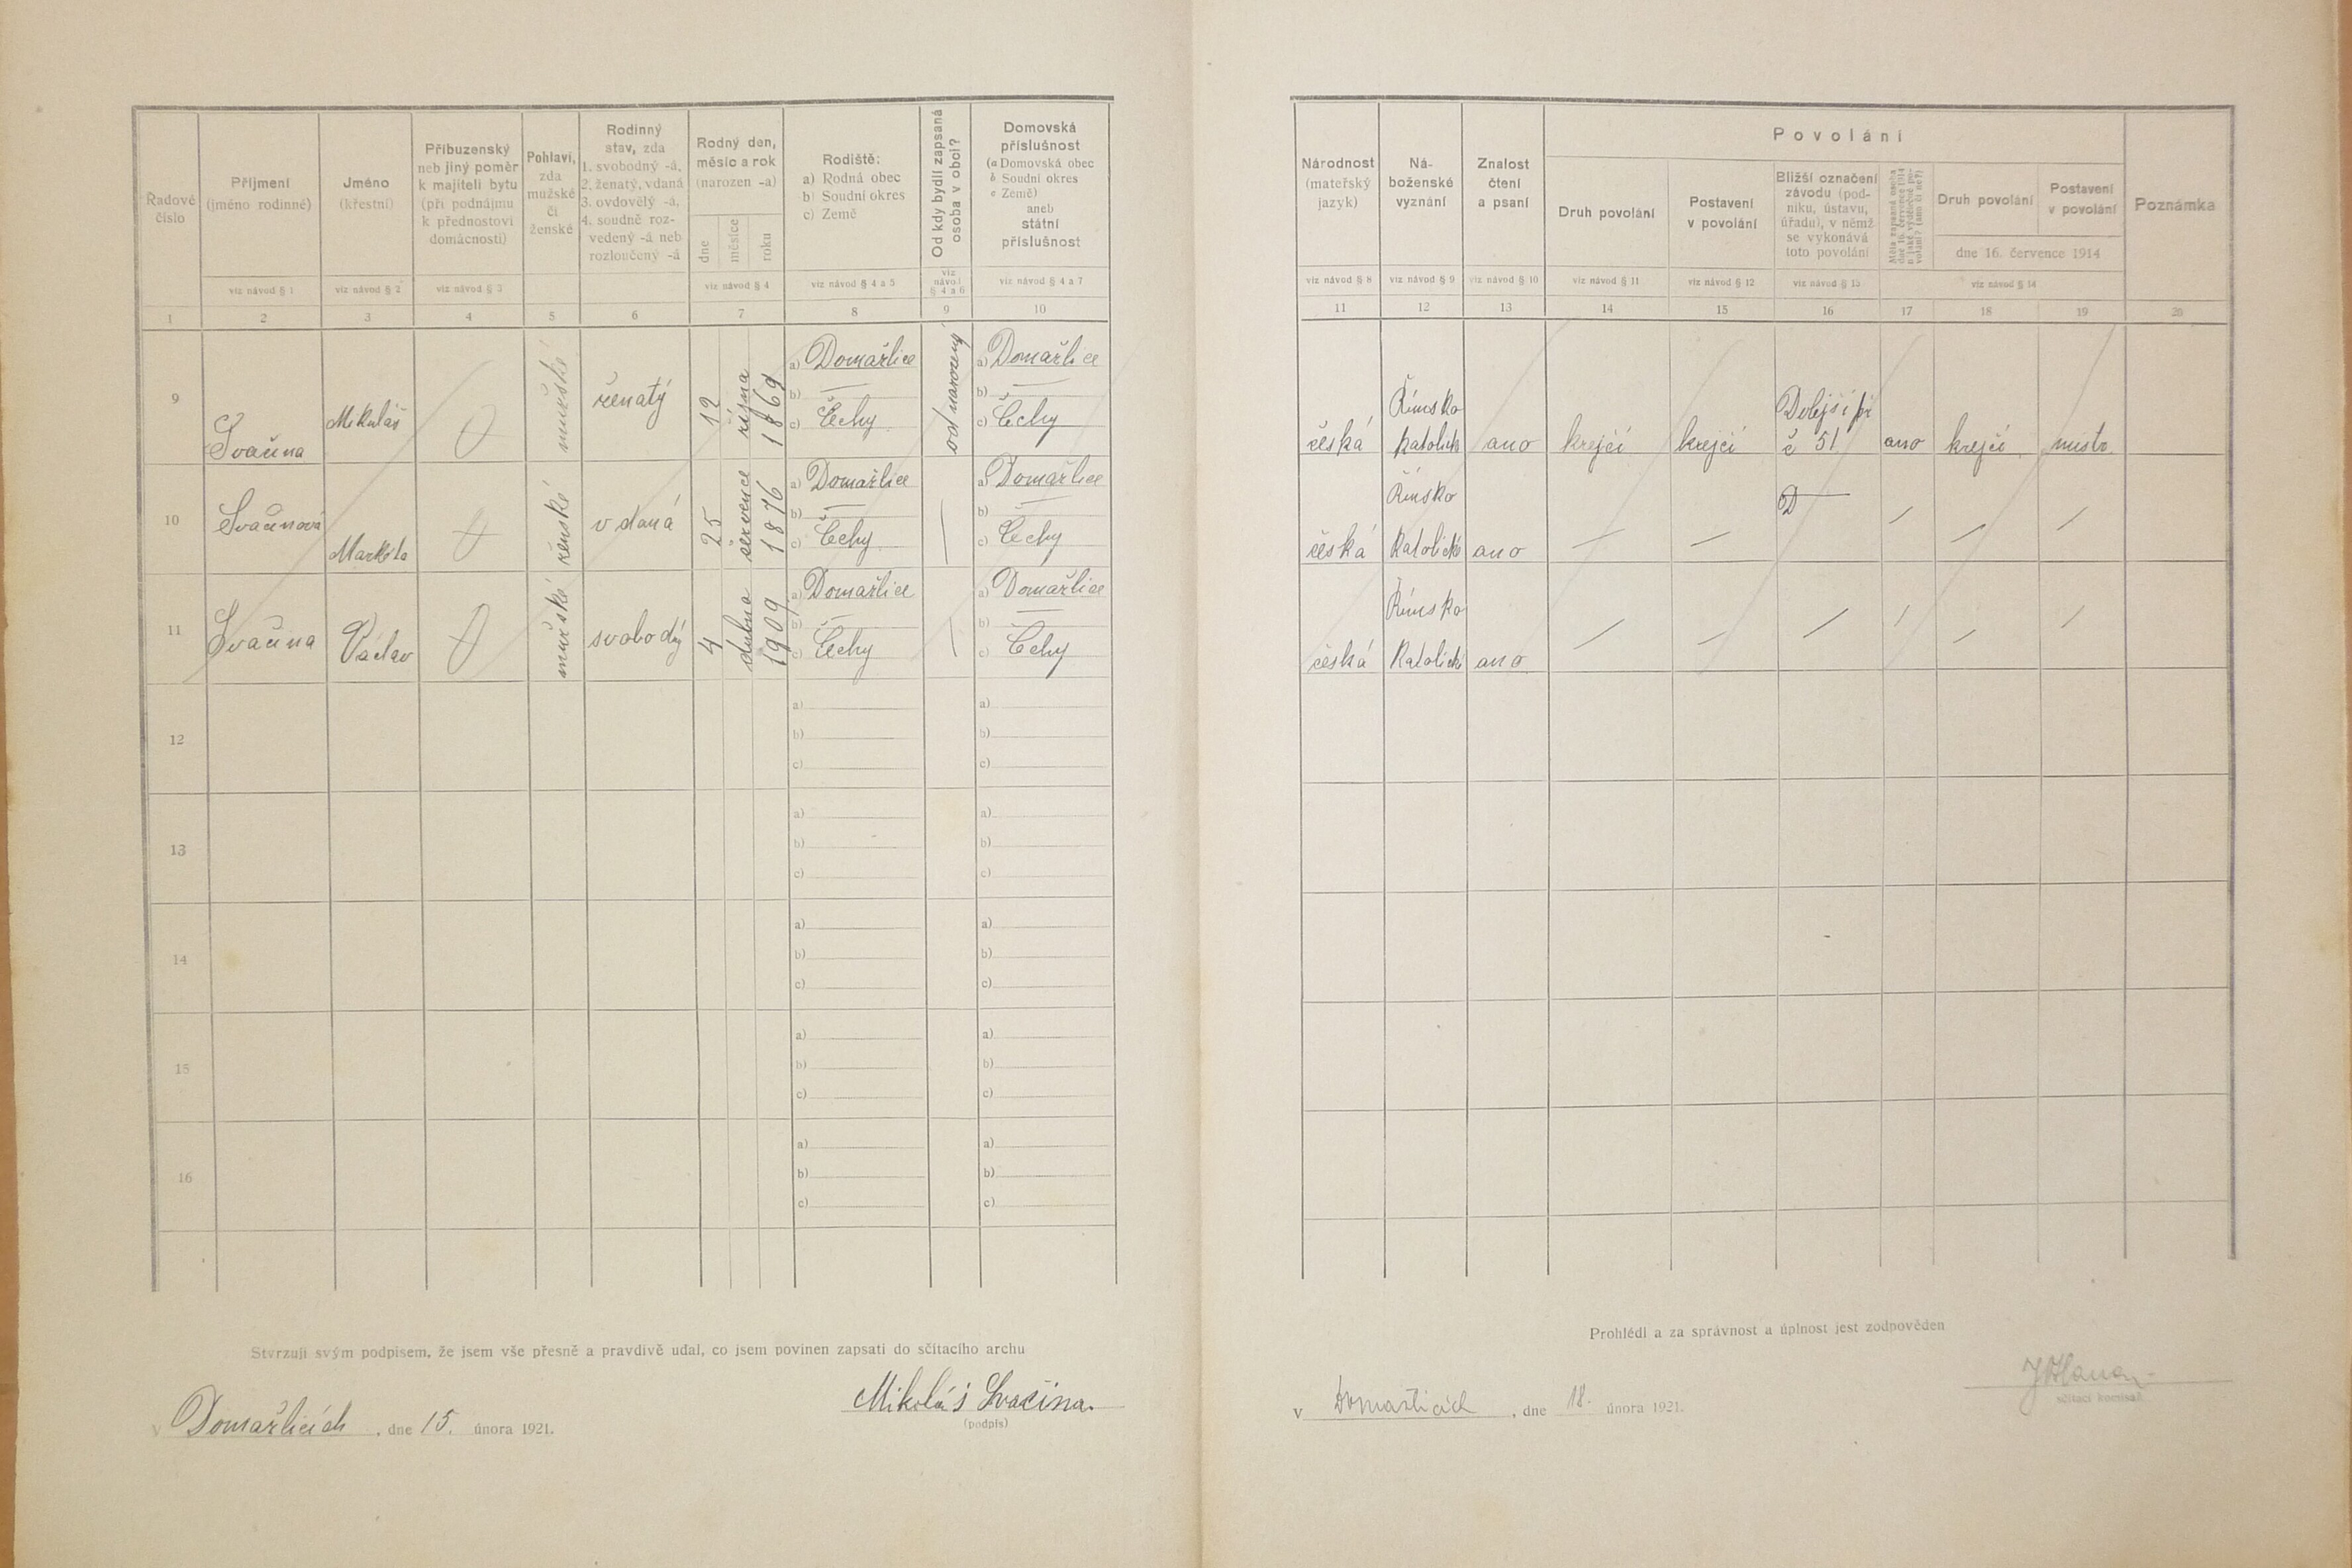 Řadové číslo
Příjmení (jméno rodinné)
viz návod § 1
Jméno (křestní)
viz návod § 2
Příbuzenský neb jiný poměr k majiteli bytu (při podnájmu k přednostovi domácnosti)
viz návod § 3
Pohlaví, zda mužské či ženské
Rodinný stav, zda 1. svobodný -á, 2. ženatý, vdaná 3. ovdovělý -á, 4. soudně rozvedený -á neb rozloučený -á
Rodný den, měsíc a rok (narozen -a)
dne měsíce roku
viz návod § 4
Rodiště: a) Rodná obec b) Soudní okres c) Země
viz návod § 4 a 5
Od kdy bydlí zapsaná osoba v obci?
viz návod § 4 a 6
Domovská příslušnost (a Domovská obec b Soudní okres c Země) aneb státní příslušnost
viz návod § 4 a 7
1 2 3 4 5 6 7 8 9 10
9 Svačina Mikuláš mužské ženatý 12 října 1869 a) Domažlice b) — c) Čechy od narození a) Domažlice b) — c) Čechy
10 Svačinová Markéta ženské vdaná 25 července 1876 a) Domažlice b) — c) Čechy a) Domažlice b) — c) Čechy
11 Svačina Václav mužské svobodý 4 dubna 1909 a) Domažlice b) — c) Čechy a) Domažlice b) — c) Čechy
12 a) b) c) a) b) c)
13 a) b) c) a) b) c)
14 a) b) c) a) b) c)
15 a) b) c) a) b) c)
16 a) b) c) a) b) c)
Stvrzuji svým podpisem, že jsem vše přesně a pravdivě udal, co jsem povinen zapsati do sčítacího archu
Mikoláš Svačina.
(podpis)
v Domažlicích, dne 15. února 1921.
Národnost (mateřský jazyk)
viz návod § 8
Náboženské vyznání
viz návod § 9
Znalost čtení a psaní
viz návod § 10
Povolání
Druh povolání
viz návod § 11
Postavení v povolání
viz návod § 12
Bližší označení závodu (podniku, ústavu, úřadu), v němž se vykonává toto povolání
viz návod § 13
Druh povolání
Postavení v povolání
dne 16. července 1914
viz návod § 14
Poznámka
11 12 13 14 15 16 17 18 19 20
česká Římsko katolick ano krejčí krejčí Dolejší př č 51 ano krejčí mistr
česká Římsko Katolické ano
česká Římsko Katolické ano
Prohlédl a za správnost a úplnost jest zodpověden
sčítací komisař
v Domažlicích, dne 18. února 1921.